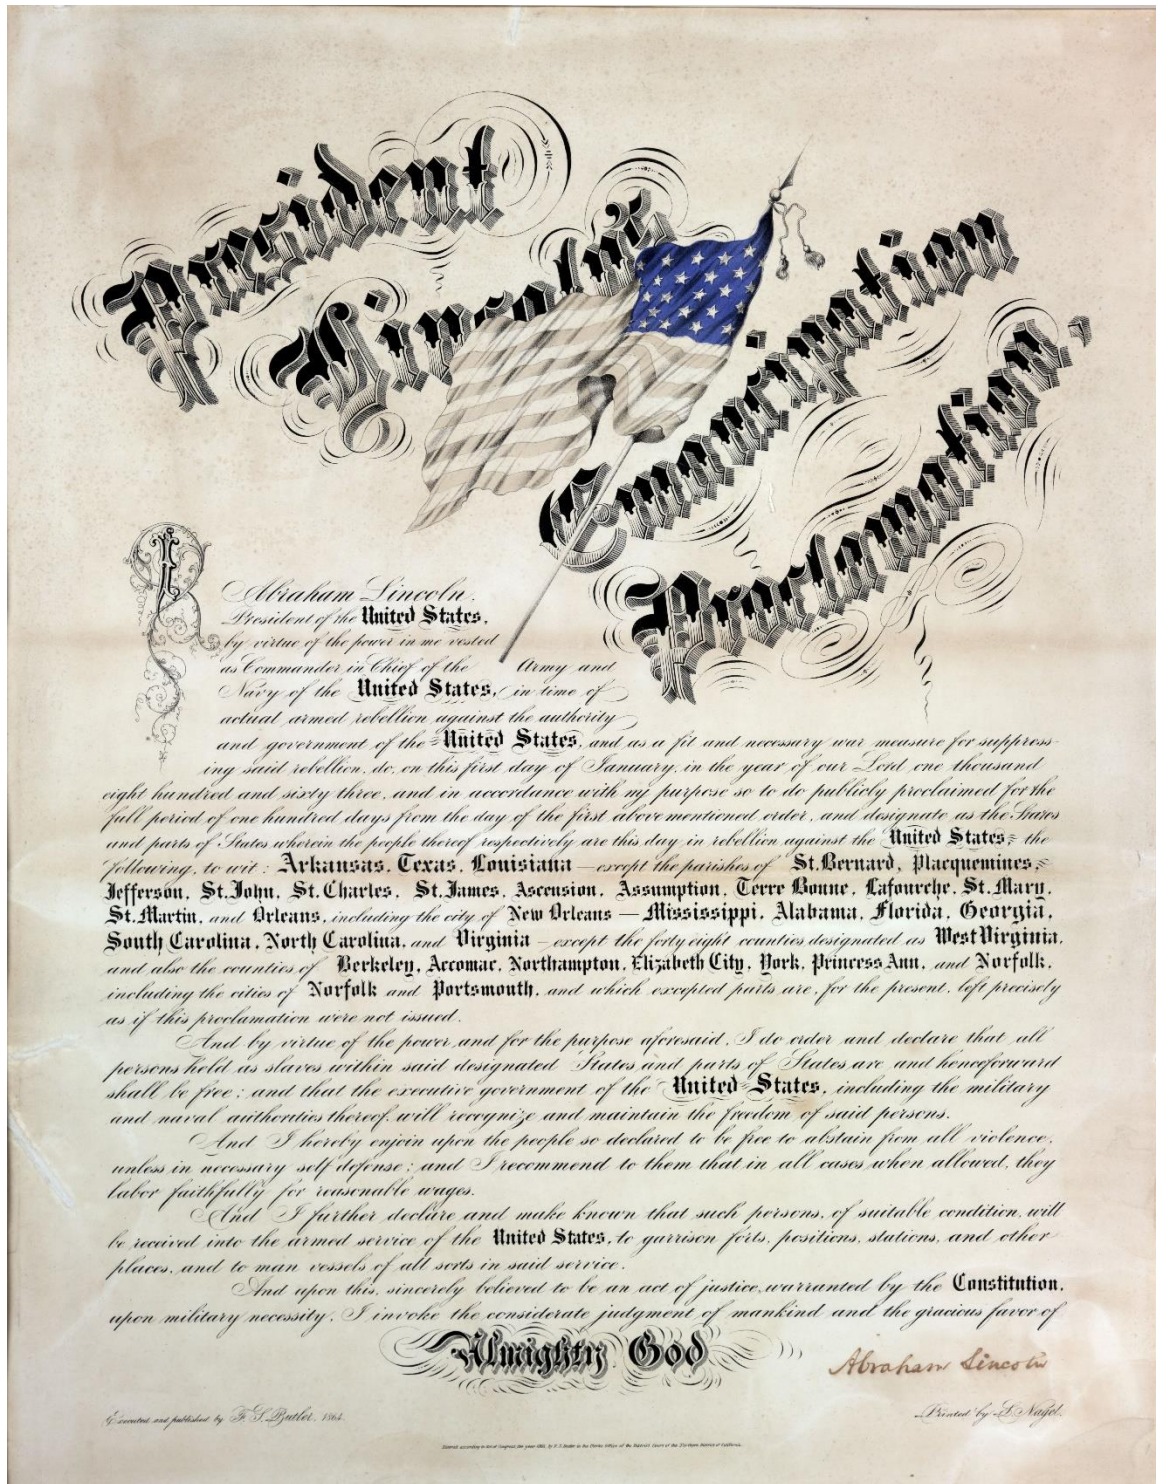 President
Lincoln's
Emancipation
Proclamation.
I
Abraham Lincoln.
President of the United States,
by virtue of the power in me vested
as Commander in Chief of the Army and
Navy of the United States, in time of
actual armed rebellion against the authority
and government of the United States, and as a fit and necessary war measure for suppress-
ing said rebellion, do, on this first day of January, in the year of our Lord one thousand
eight hundred and sixty three, and in accordance with my purpose so to do publicly proclaimed for the
full period of one hundred days from the day of the first above mentioned order, and designate as the States
and parts of States wherein the people thereof respectively are this day in rebellion against the United States = the
following, to wit: Arkansas, Texas, Louisiana — except the parishes of St. Bernard, Placquemines,
Jefferson, St. John, St. Charles, St. James, Ascension, Assumption, Terre Bonne, Lafourche, St. Mary,
St. Martin, and Orleans, including the city of New Orleans — Mississippi, Alabama, Florida, Georgia,
South Carolina, North Carolina, and Virginia — except the forty eight counties designated as West Virginia,
and also the counties of Berkeley, Accomac, Northampton, Elizabeth City, York, Princess Ann, and Norfolk,
including the cities of Norfolk and Portsmouth, and which excepted parts are, for the present, left precisely
as if this proclamation were not issued.
And by virtue of the power and for the purpose aforesaid, I do order and declare that all
persons held as slaves within said designated States and parts of States are and henceforward
shall be free; and that the executive government of the United States, including the military
and naval authorities thereof, will recognize and maintain the freedom of said persons.
And I hereby enjoin upon the people so declared to be free to abstain from all violence,
unless in necessary self defense; and I recommend to them that in all cases, when allowed, they
labor faithfully for reasonable wages.
And I further declare and make known that such persons, of suitable condition, will
be received into the armed service of the United States, to garrison forts, positions, stations, and other
places, and to man vessels of all sorts in said service.
And upon this, sincerely believed to be an act of justice, warranted by the Constitution,
upon military necessity, I invoke the considerate judgment of mankind and the gracious favor of
Almighty God
Abraham Lincoln
Executed and published by F. S. Butler, 1864.
Printed by L. Nagel.
Entered according to Act of Congress, the year 1864, by F. S. Butler in the Clerks Office of the District Court of the Northern District of California.